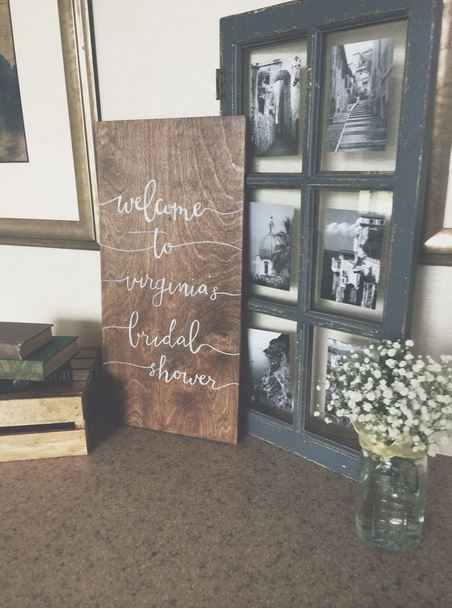 welcome
to
virginia's
bridal
shower